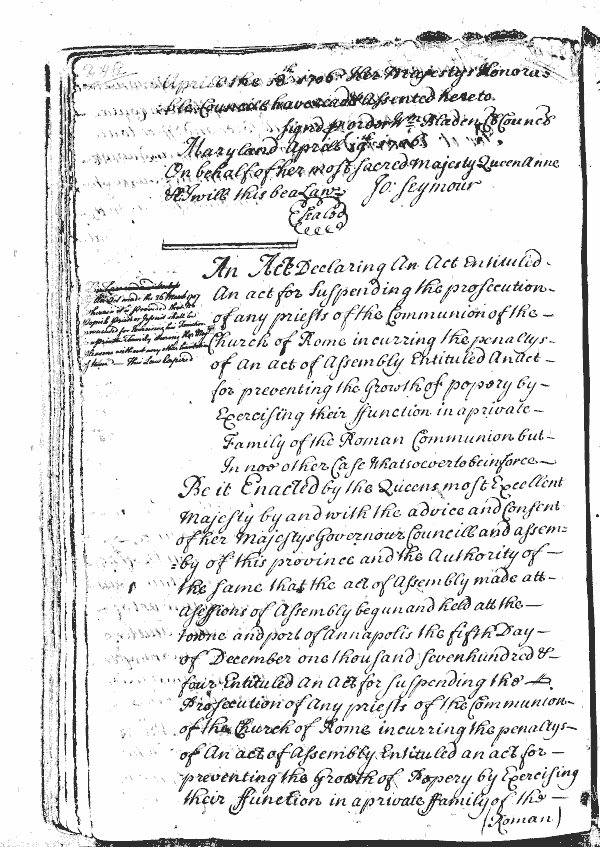 248
Aprill the 18th 1706 Her Majestys Honora=
ble Councill have read & Assented hereto.
Signd p order Wm Bladen Cl Councll
Maryland Aprill 19th 1706
On behalf of her most Sacred Majesty Queen Anne
&c I will this be a Law
Jo: Seymour
Seales
An Act Declaring An Act Entituled -
An act for Suspending the prosecution -
of any priests of the Communion of the -
Church of Rome incurring the penaltys -
of an act of Assembly Entituled An act -
for preventing the Growth of popery by -
Exercising their ffunction in a private -
Family of the Roman Communion but -
In noe other Case Whatsoever to be in force -
Be it Enacted by the Queens most Excellent
Majesty by and with the advice and Consent
of her Majestys Governour Councill and assem=
=by of this province and the Authority of -
the same that the act of Assembly made att -
a Sessions of Assembly begun and held att the -
towne and port of Annapolis the fifth Day -
of December one thousand Seven hundred & -
four Entituled An act for Suspending the -
Prosecution of Any priests of the Communion -
of the Church of Rome incurring the penaltys -
of An act of Assembly Entituled an act for -
preventing the Growth of Popery by Exercising
their ffunction in a private ffamily of the -
(Roman)